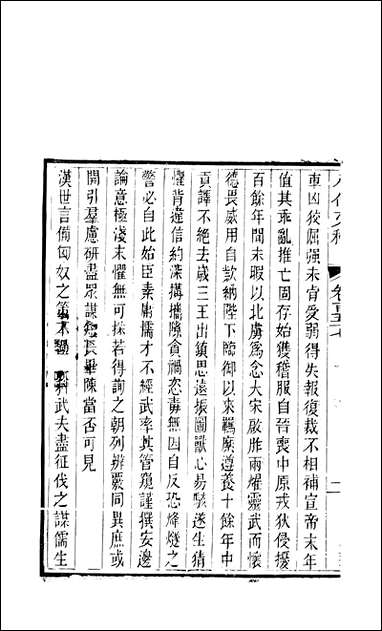 八代文粹　卷百五七
車凶狡屈强未肯受弱得失報復裁不相補宣帝末年
值其乖亂推亡固存始獲稽服自晉喪中原戎狄侵擾
百餘年間未暇以北虜爲念大宋啟胙兩燿靈武而懷
德畏威用自款納陛下臨御以來羈縻遵養十餘年中
貢譯不絶去歲三王出鎮思遠振圖獸心易駭遂生猜
懼背違信約深搆攜隙貪禍恣毒無因自反恐烽燧之
警必自此始臣素庸懦才不經武率其管窺謹撰安邊
論意極淺末懼無可採若得詢之朝列辨覈同異庶或
開引羣慮研盡眾謀短長畢陳當否可見
漢世言備匈奴之策不過二科武夫盡征伐之謀儒生